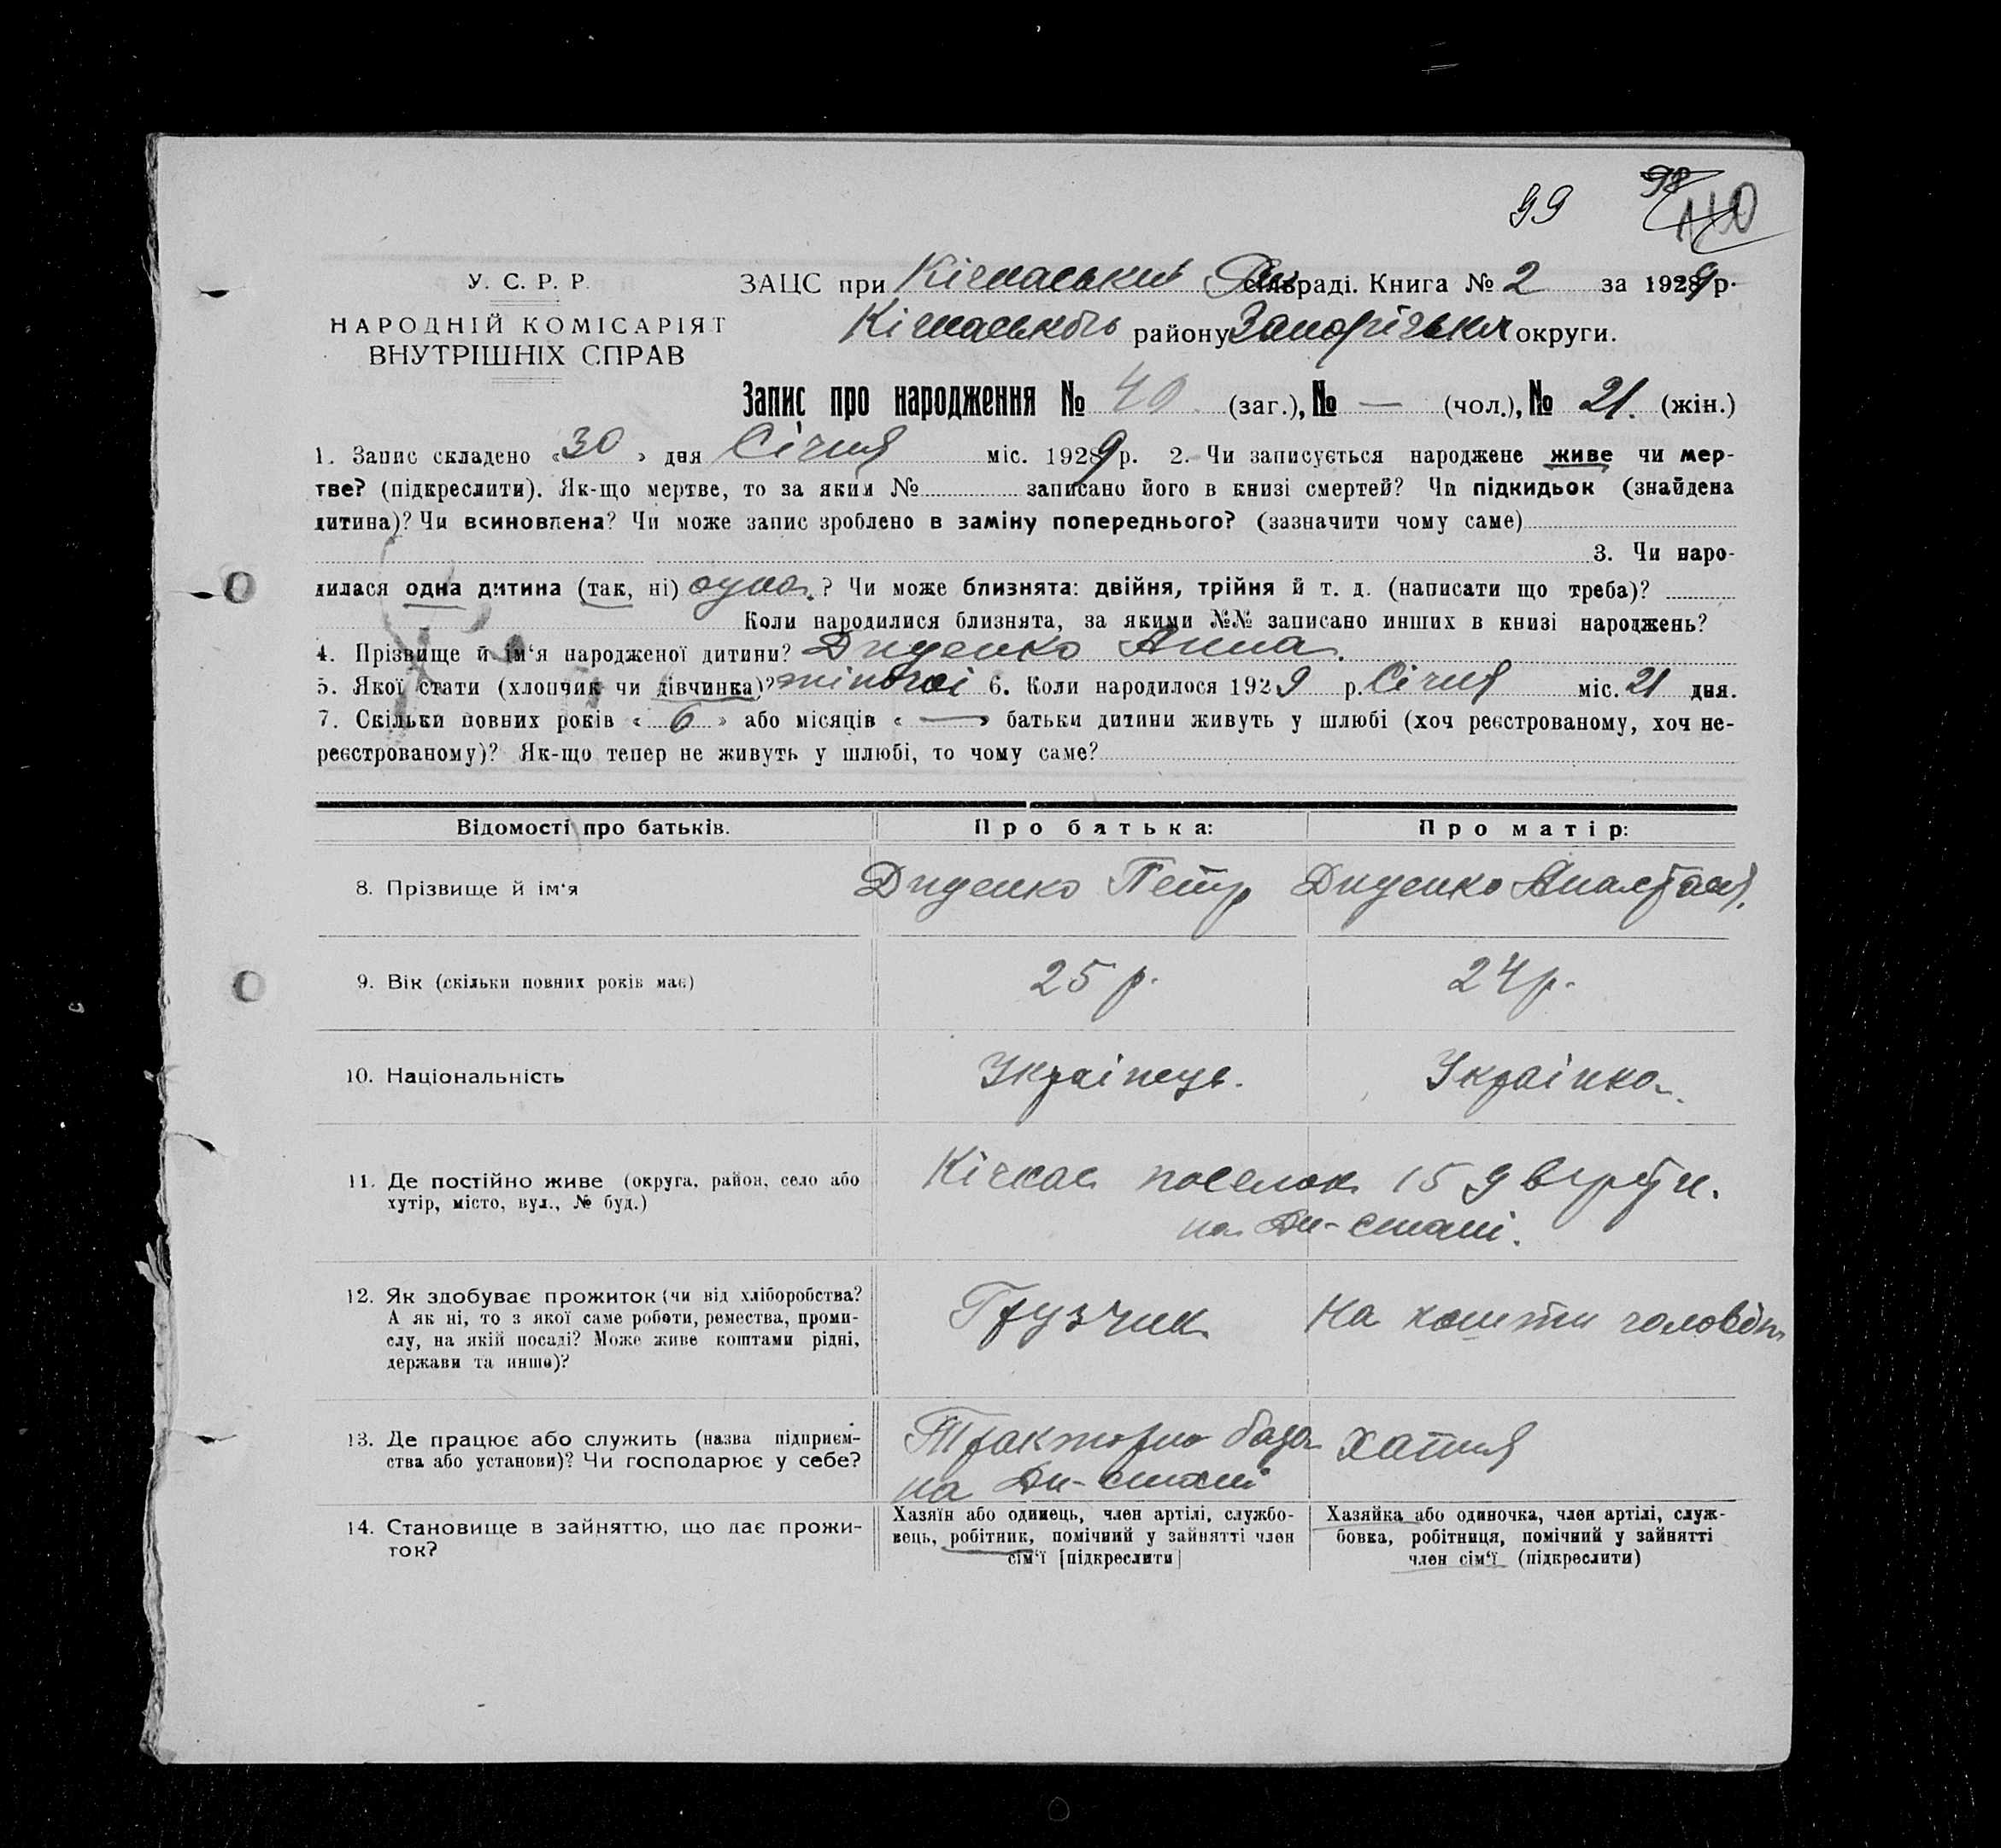 99 98 110
У. С. Р. Р.
НАРОДНІЙ КОМІСАРІЯТ
ВНУТРІШНІХ СПРАВ
ЗАЦС при Кічкаській раді. Книга № 2 за 1929 р.
Кічкаського району Запорізької округи.
Запис про народження № 40. (заг.), № — (чол.), № 21. (жін.)
1. Запис складено «30» дня Січня міс. 1929 р. 2. Чи записується народжене живе чи мер-
тве? (підкреслити). Як-що мертве, то за яким № записано його в книзі смертей? Чи підкидьок (знайдена
дитина)? Чи всиновлена? Чи може запис зроблено в заміну попереднього? (зазначити чому саме)
3. Чи наро-
дилася одна дитина (так, ні) одна.? Чи може близнята: двійня, трійня й т. д. (написати що треба)?
Коли народилися близнята, за якими №№ записано инших в книзі народжень?
4. Прізвище й ім‘я народженої дитини? Диденко Анна.
5. Якої стати (хлопчик чи дівчинка)? жіночої 6. Коли народилося 1929 р. Січня міс. 21 дня.
7. Скільки повних років « 6 » або місяців « — » батьки дитини живуть у шлюбі (хоч реєстрованому, хоч не-
реєстрованому)? Як-що тепер не живуть у шлюбі, то чому саме?
Відомості про батьків. Про батька: Про матір:
8. Прізвище й ім‘я Диденко Петр Диденко Анастасія.
9. Вік (скільки повних років має) 25 р. 24 р.
10. Національність Українець. Українка.
11. Де постійно живе (округа, район, село або
хутір, місто, вул., № буд.)
Кічкас поселок 15
на Дн-стані.
12. Як здобуває прожиток (чи від хліборобства?
А як ні, то з якої саме роботи, ремества, проми-
слу, на якій посаді? Може живе коштами рідні,
держави та инше)?
Грузчик На кошти чоловіка
13. Де працює або служить (назва підприєм-
ства або установи)? Чи господарює у себе?
Тракторно база
на Дн-стані
Хатня
14. Становище в зайняттю, що дає прожи-
ток?
Хазяїн або одинець, член артілі, службо-
вець, робітник, помічний у зайнятті член
сім‘ї [підкреслити]
Хазяйка або одиночка, член артілі, служ-
бовка, робітниця, помічний у зайнятті
член сім‘ї (підкреслити)